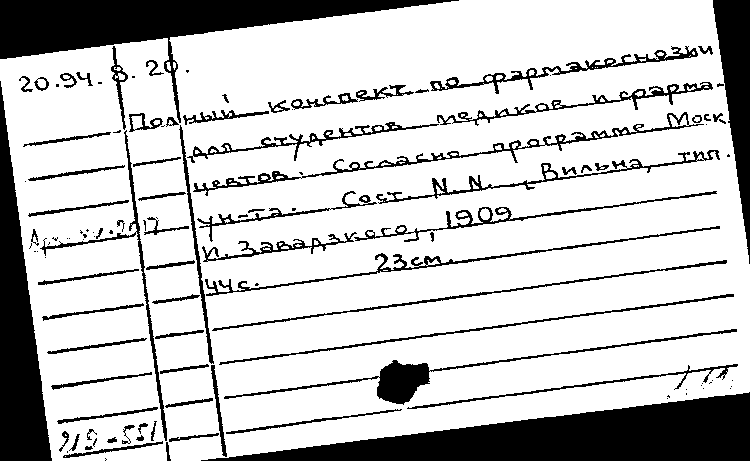 20.94.8.20.
Полный конспект по фармакогнозии
для студентов медиков и фарма-
цевтов. Согласно программе Моск.
ун-та. Сост. N.N. [Вильна, тип.
И. Завадзкого], 1909.
44с. 23см.
219-551